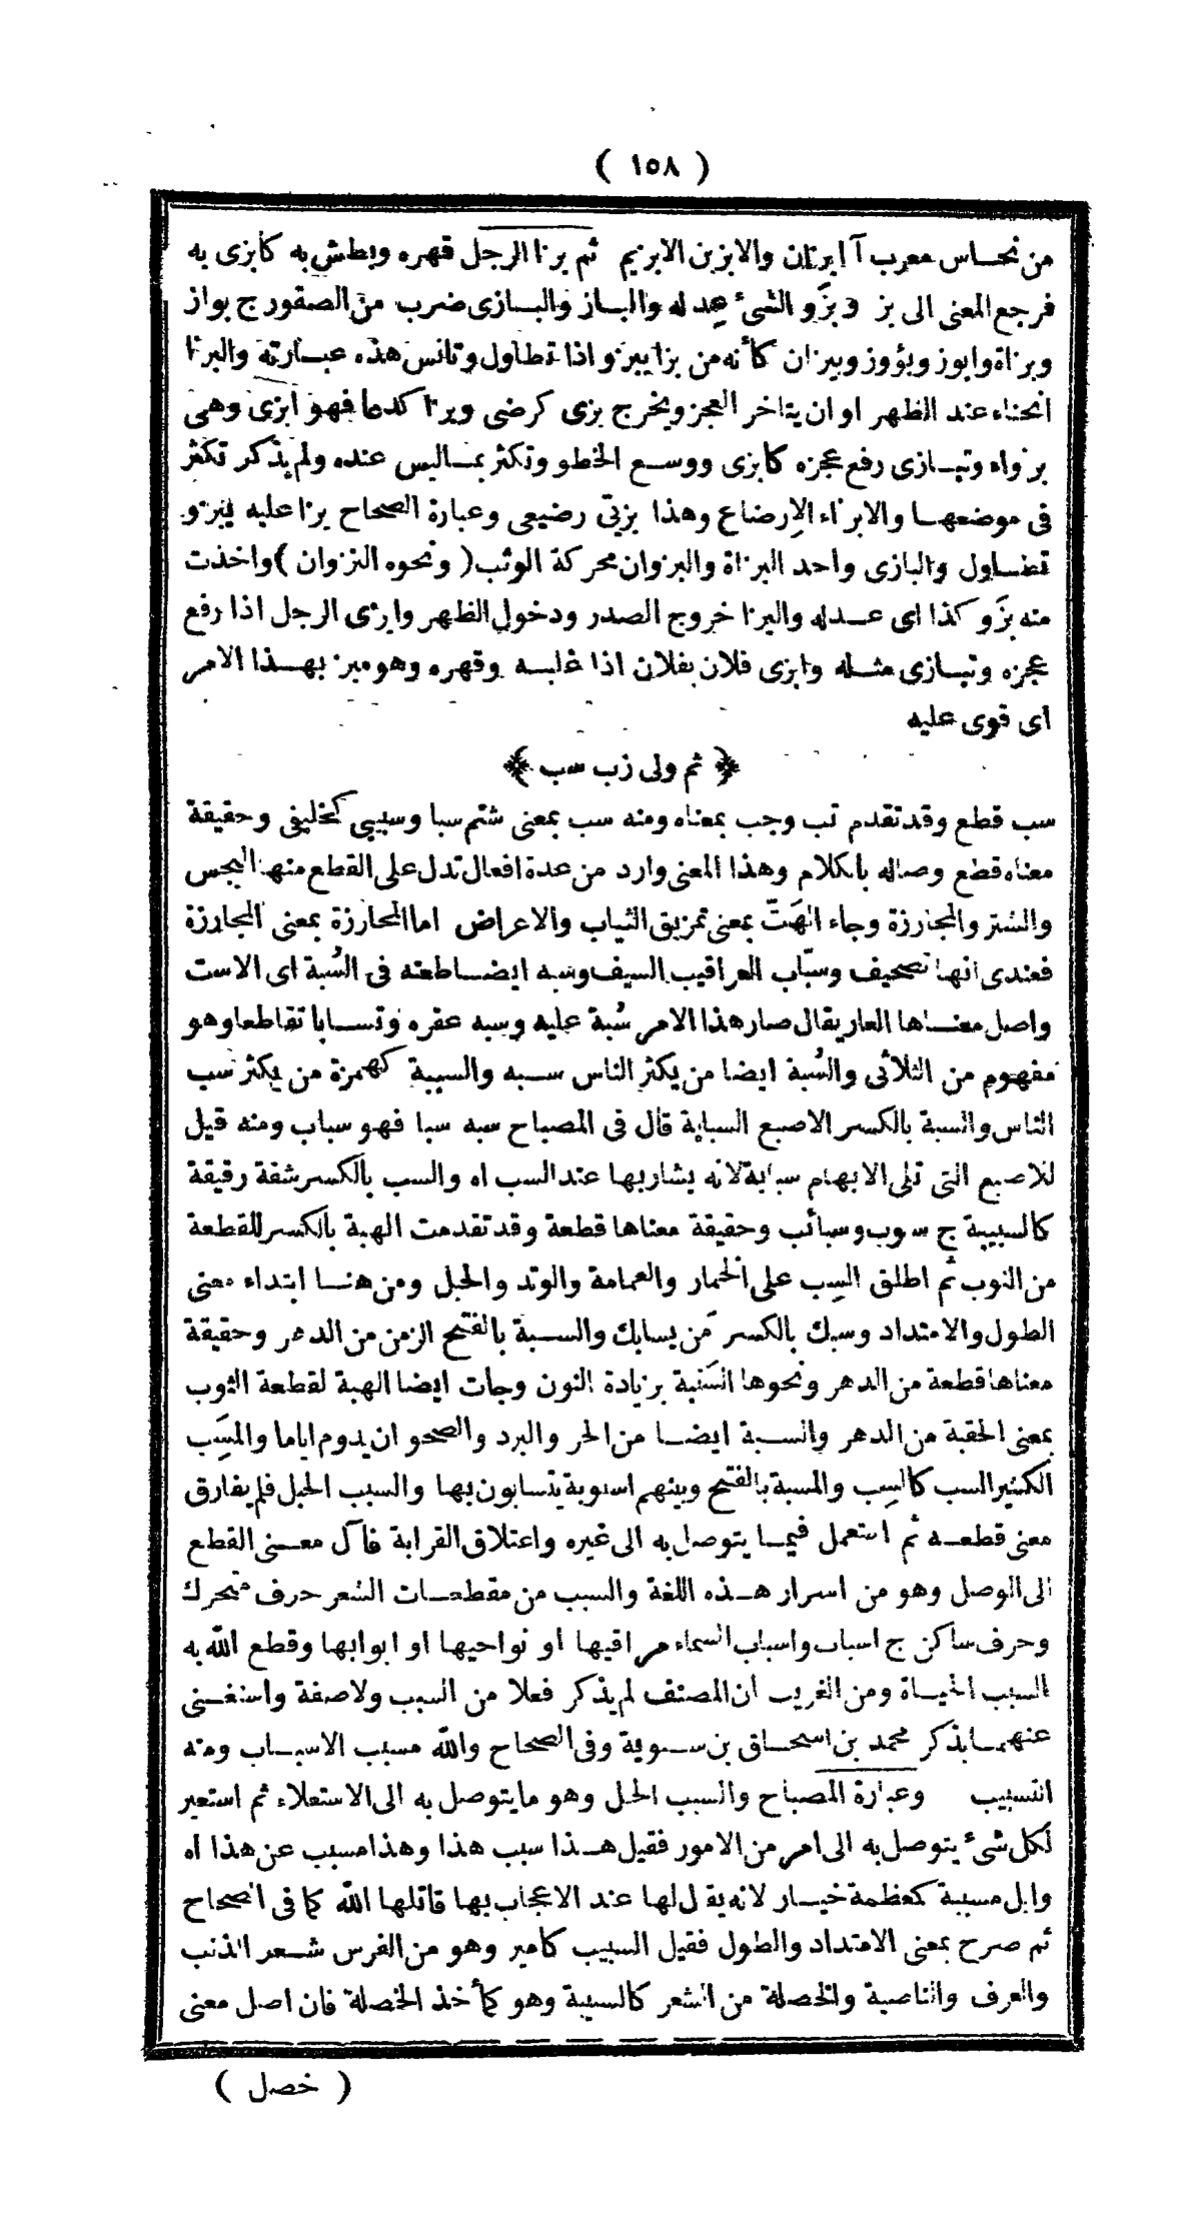 ( ١٥٨ )
من نحاس معرب آ ابزنان والابزبن الابزيم ثم بزنا الرجل قهره وبطش به كابزى به
فرجع المعنى الى بز و بَزْو الشئ عِدله والباز والبازى ضرب من الصقور ج بواز
وبزاة وابوز وبؤوز وبيزان كأنه من بزا يبزو اذا تطاول وتانس هذه عبارته والبزا
انحناء عند الظهر او ان يتاخر العجز ويخرج بزى كرضى وبزا كدعا فهو ابزى وهى
بزواء وتبازى رفع عجزه كابزى ووسع الخطو وتكثر بما ليس عنده ولم يذكر تكثر
فى موضعها والابزاء الاِرضاع وهذا بزيّى رضيعى وعبارة الصحاح بزا عليه يبزو
تطاول والبازى واحد البزاة والبزوان محركة الوثب ( ونحوه النزوان ) واخذت
منه بَزْو كذا اى عدله والبزا خروج الصدر ودخول الظهر وابزى الرجل اذا رفع
عجزه وتبازى مثله وابزى فلان بفلان اذا غلبه وقهره وهو مبز بهذا الامر
اى قوى عليه
﴿ ثم ولى زب سب ﴾
سب قطع وقد تقدم تب وجب بمعناه ومنه سب بمعنى شتم سبا وسبيبى كخليفى وحقيقة
معناه قطع وصاله بالكلام وهذا المعنى وارد من عدة افعال تدل على القطع منها البجس
والشتر والمجارزة وجاء الهَتّ بمعنى تمزيق الثياب والاعراض اما المحارزة بمعنى المجارزة
فعندى انها تصحيف وسبّاب العراقيب السيف وسبه ايضا طعنه فى السُبة اى الاست
واصل معناها العار يقال صار هذا الامر سُبة عليه وسبه عقره وتسابا تقاطعا وهو
مفهوم من الثلاثى والسُبة ايضا من يكثر الناس سبه والسببة كهمزة من يكثر سب
الناس والسبة بالكسر الاصبع السبابة قال فى المصباح سبه سبا فهو سباب ومنه قيل
للاصبع التى تلى الابهام سبابة لانه يشار بها عند السب اه والسب بالكسر شقة رقيقة
كالسبيبة ج سبوب وسبائب وحقيقة معناها قطعة وقد تقدمت الهبة بالكسر للقطعة
من الثوب ثم اطلق السِب على الخمار والعمامة والوتد والحبل ومن هنا ابتداء معنى
الطول والامتداد وسبك بالكسر مَن يسابك والسبة بالفتح الزمن من الدهر وحقيقة
معناها قطعة من الدهر ونحوها السَنبة بزيادة النون وجات ايضا الهبة لقطعة الثوب
بمعنى الحقبة من الدهر والسبة ايضا من الحر والبرد والصحو ان يدوم اياما والمسَِب
الكثير السب كالسِب والمسبة بالفتح وبينهم اسبوبة يتسابون بها والسبب الحبل فلم يفارق
معنى قطعه ثم استعمل فيما يتوصل به الى غيره واعتلاق القرابة فآل معنى القطع
الى الوصل وهو من اسرار هذه اللغة والسبب من مقطعات الشعر حرف متحرك
وحرف ساكن ج اسباب واسباب السماء مراقيها او نواحيها او ابوابها وقطع الله به
السبب الحياة ومن الغريب ان المصنف لم يذكر فعلا من السبب ولا صفة واستغنى
عنهما بذكر محمد بن اسحاق بن سبوية وفى الصحاح والله مسبب الاسباب ومنه
التسبيب وعبارة المصباح والسبب الحبل وهو ما يتوصل به الى الاستعلاء ثم استعير
لكل شئ يتوصل به الى امر من الامور فقيل هذا سبب هذا وهذا مسبب عن هذا اه
وابل مسببة كمعظمة خيار لانه يقال لها عند الاعجاب بها قاتلها الله كما فى الصحاح
ثم صرح بمعنى الامتداد والطول فقيل السبيب كامير وهو من الفرس شعر الذنب
والعرف والناصية والخصلة من الشعر كالسبيبة وهو كمأخذ الخصلة فان اصل معنى
( خصل )